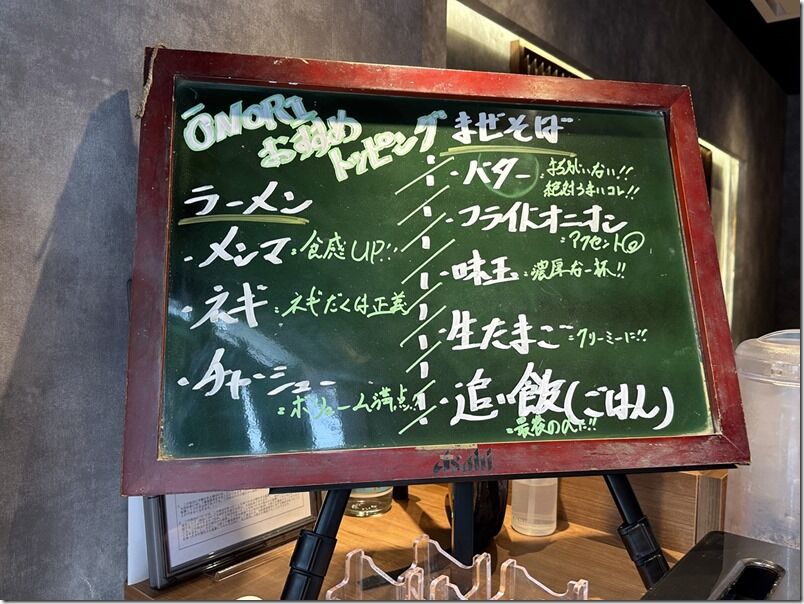 ŌNORI
おすすめ
トッピング
ラーメン
・メンマ=食感UP!!
・ネギ=ネギだくは正義
・チャーシュー
=ボリューム満点!!
まぜそば
・バター=まちがいない!!
絶対うまいコレ!!
・フライドオニオン
=アクセント
・味玉=濃厚な一杯!!
・生たまご=クリーミーに!!
・追い飯(ごはん)
=最後の〆に!!
Asahi